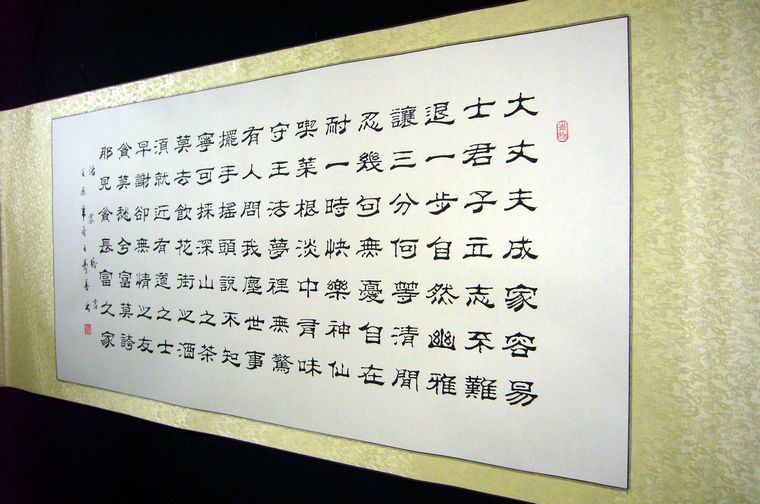 大丈夫成家容易
士君子立志不難
退一步自然幽雅
讓三分何等清閒
忍幾句無憂自在
耐一時快樂神仙
喫菜根淡中有味
守王法夢裡無驚
有人問我塵世事
擺手搖頭說不知
寧可採深山之茶
莫去飲花街之酒
須就近有道之士
早謝卻無情之友
貧莫愁兮富莫誇
那見貧長富久家
治家格言